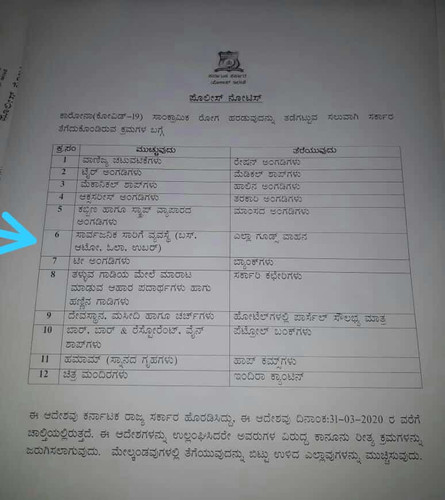 ಕರ್ನಾಟಕ ಸರ್ಕಾರ
ಪೊಲೀಸ್ ಇಲಾಖೆ
ಪೊಲೀಸ್ ನೋಟಿಸ್
ಕಾರೋನಾ(ಕೋವಿಡ್-19) ಸಾಂಕ್ರಾಮಿಕ ರೋಗ ಹರಡುವುದನ್ನು ತಡೆಗಟ್ಟುವ ಸಲುವಾಗಿ ಸರ್ಕಾರ
ತೆಗೆದುಕೊಂಡಿರುವ ಕ್ರಮಗಳ ಬಗ್ಗೆ
ಕ್ರ.ಸಂ ಮುಚ್ಚುವುದು ತೆರೆಯುವುದು
1 ವಾಣಿಜ್ಯ ಚಟುವಟಿಕೆಗಳು ರೇಷನ್ ಅಂಗಡಿಗಳು
2 ಟೈರ್ ಅಂಗಡಿಗಳು ಮೆಡಿಕಲ್ ಶಾಪ್‌ಗಳು
3 ಮೆಕಾನಿಕಲ್ ಶಾಪ್‌ಗಳು ಹಾಲಿನ ಅಂಗಡಿಗಳು
4 ಆಕ್ಸರೀಸ್ ಅಂಗಡಿಗಳು ತರಕಾರಿ ಅಂಗಡಿಗಳು
5 ಕಬ್ಬಿಣ ಹಾಗೂ ಸ್ಕ್ರಾಪ್ ವ್ಯಾಪಾರದ ಅಂಗಡಿಗಳು ಮಾಂಸದ ಅಂಗಡಿಗಳು
6 ಸಾರ್ವಜನಿಕ ಸಾರಿಗೆ ವ್ಯವಸ್ಥೆ (ಬಸ್, ಆಟೋ, ಓಲಾ, ಉಬರ್) ಎಲ್ಲಾ ಗೂಡ್ಸ್ ವಾಹನ
7 ಟೀ ಅಂಗಡಿಗಳು ಬ್ಯಾಂಕ್‌ಗಳು
8 ತಳ್ಳುವ ಗಾಡಿಯ ಮೇಲೆ ಮಾರಾಟ ಮಾಡುವ ಆಹಾರ ಪದಾರ್ಥಗಳು ಹಾಗು ಹಣ್ಣಿನ ಗಾಡಿಗಳು ಸರ್ಕಾರಿ ಕಛೇರಿಗಳು
9 ದೇವಸ್ಥಾನ, ಮಸೀದಿ ಹಾಗೂ ಚರ್ಚ್‌ಗಳು ಹೋಟೆಲ್‌ಗಳಲ್ಲಿ ಪಾರ್ಸೆಲ್ ಸೌಲಭ್ಯ ಮಾತ್ರ
10 ಬಾರ್, ಬಾರ್ & ರೆಸ್ಟೋರೆಂಟ್, ವೈನ್ ಶಾಪ್‌ಗಳು ಪೆಟ್ರೋಲ್ ಬಂಕ್‌ಗಳು
11 ಹಮಾಮ್ (ಸ್ನಾನದ ಗೃಹಗಳು) ಹಾಪ್ ಕಮ್ಸ್‌ಗಳು
12 ಚಿತ್ರ ಮಂದಿರಗಳು ಇಂದಿರಾ ಕ್ಯಾಂಟಿನ್
ಈ ಆದೇಶವು ಕರ್ನಾಟಕ ರಾಜ್ಯ ಸರ್ಕಾರ ಹೊರಡಿಸಿದ್ದು, ಈ ಆದೇಶವು ದಿನಾಂಕ:31-03-2020 ರ ವರೆಗೆ
ಚಾಲ್ತಿಯಲ್ಲಿರುತ್ತದೆ. ಈ ಆದೇಶಗಳನ್ನು ಉಲ್ಲಂಘಿಸಿದರೇ ಅವರುಗಳ ವಿರುದ್ದ ಕಾನೂನು ರೀತ್ಯ ಕ್ರಮಗಳನ್ನು
ಜರುಗಿಸಲಾಗುವುದು. ಮೇಲ್ಕಂಡವುಗಳಲ್ಲಿ ತೆಗೆಯುವುದನ್ನು ಬಿಟ್ಟು ಉಳಿದ ಎಲ್ಲಾವುಗಳನ್ನು ಮುಚ್ಚಿಸುವುದು.